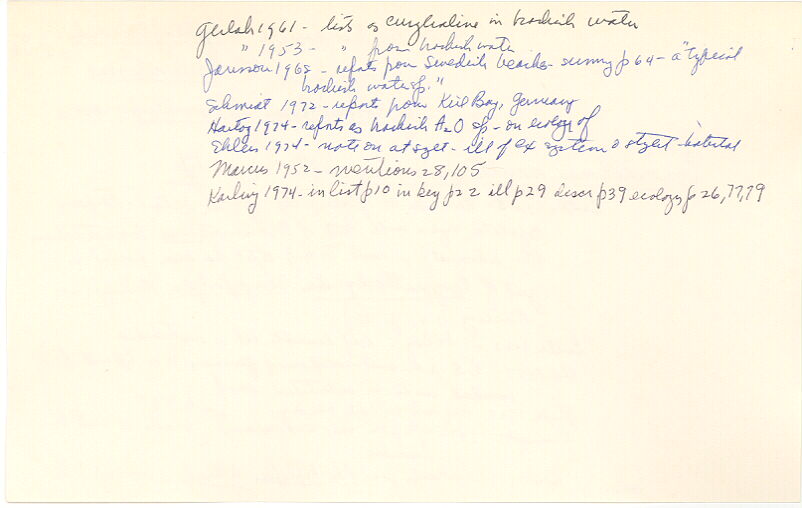 Gerlach 1961 - lists as euryhaline in brackish water
" 1953 - " from brackish water
Jansson 1968 - reports from Swedish beaches - summary p 64 - a "typical
brackish water sp."
Schmidt 1972 - reports from Kiel Bay, Germany
Hartog 1974 - reports as brackish H2O sp - on ecology of
Ehlers 1974 - note on at sylt - ill of ex system & stylet -
Marcus 1952 - mentions 28, 105
Karling 1974 - in list p10 in key p22 ill p29 descr p39 ecology p 26, 77, 79